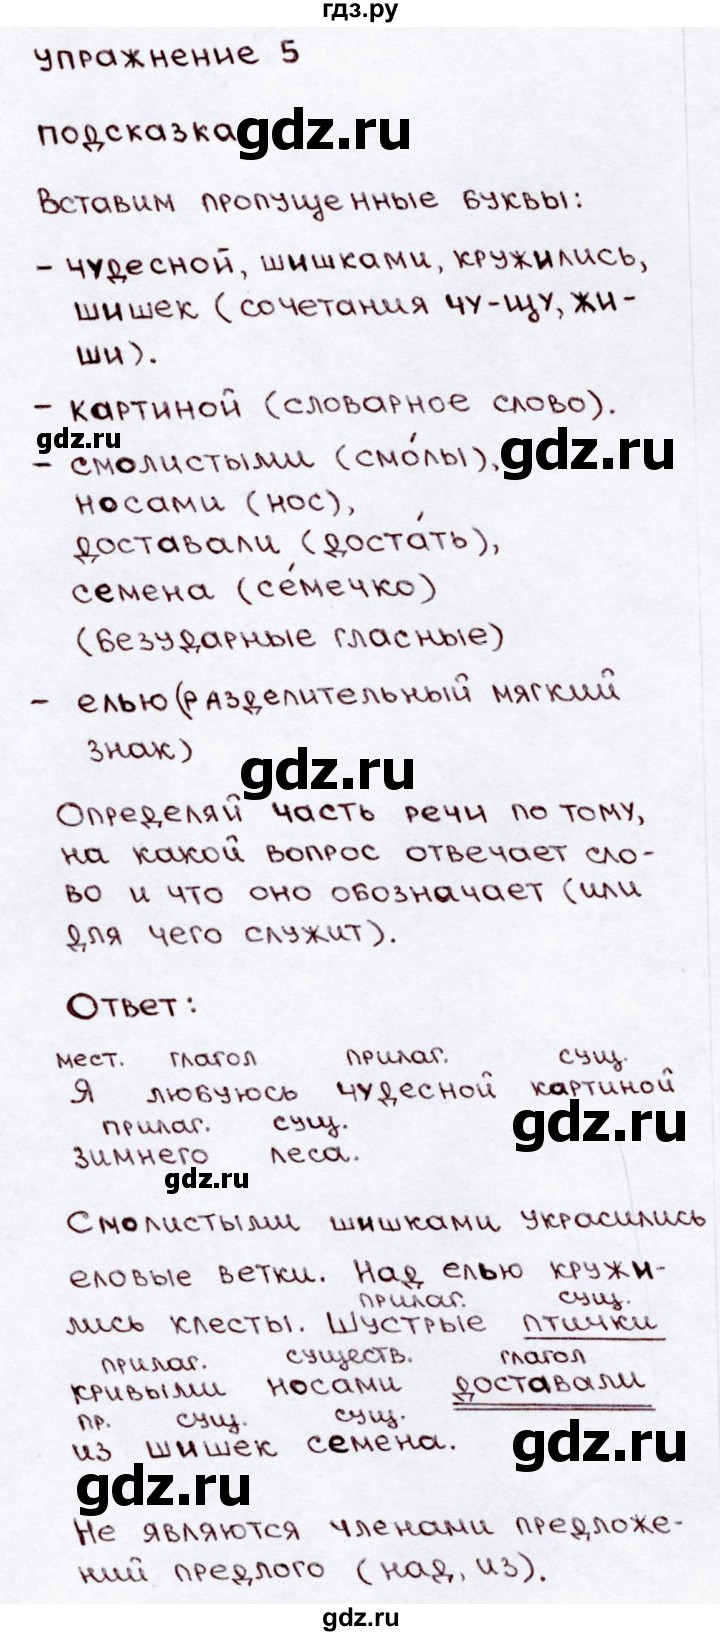 гдз.ру
упражнение 5
подсказка
gdz.ru
Вставим пропущенные буквы:
- чудесной, шишками, кружились,
шишек (сочетания чу-щу, жи-
ши).
- картиной (словарное слово).
gdz.ru
- смолистыми (смо́лы),
gdz.ru
носами (нос),
доставали (доста́ть),
семена (се́мечко)
(безударные гласные)
- елью (разделительный мягкий
знак)
gdz.ru
Определяй часть речи по тому,
на какой вопрос отвечает сло-
во и что оно обозначает (или
для чего служит).
Ответ:
мест. глагол прилаг. сущ.
Я любуюсь чудесной картиной
gdz.ru
прилаг. сущ.
зимнего леса.
gdz.ru
Смолистыми шишками украсились
еловые ветки. Над елью кружи-
прилаг. сущ.
лись клесты. Шустрые птички
прилаг. существ. глагол
кривыми носами доставали
пр. сущ. сущ.
из шишек семена.
gdz.ru
gdz.ru
Не являются членами предложе-
ний предлого (над, из).
gdz.ru